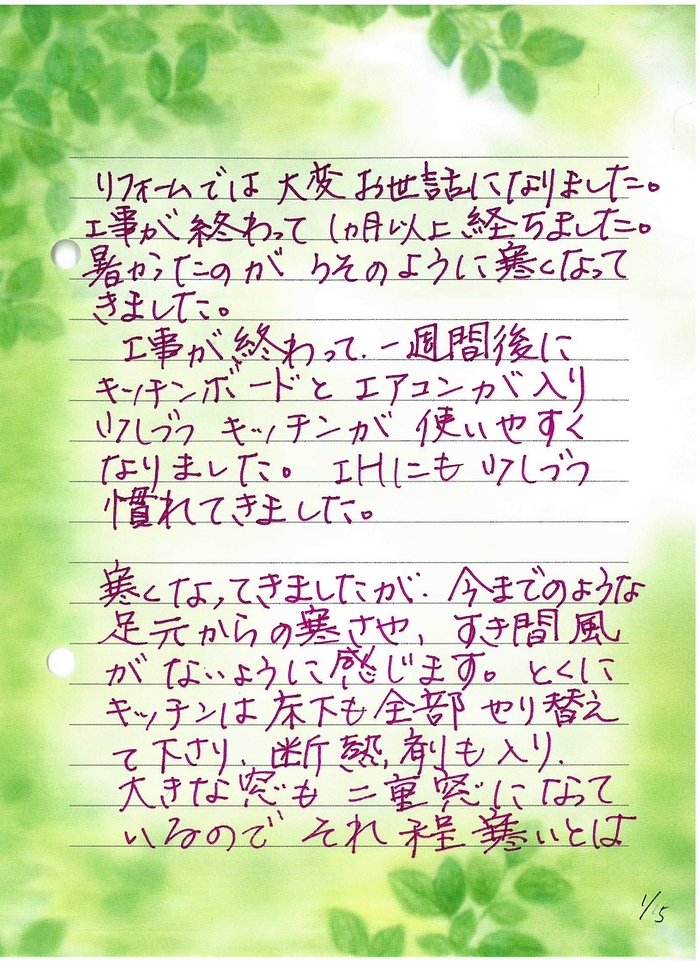 リフォームでは大変お世話になりました。
工事が終わって1ヵ月以上経ちました。
暑かったのがうそのように寒くなって
きました。
工事が終わって、一週間後に
キッチンボードとエアコンが入り
少しづつキッチンが使いやすく
なりました。IHにも少しづつ
慣れてきました。
寒くなってきましたが、今までのような
足元からの寒さや、すき間風
がないように感じます。とくに
キッチンは床下も全部やり替え
て下さり、断熱剤も入り、
大きな窓も二重窓になって
いるのでそれ程寒いとは
1/5